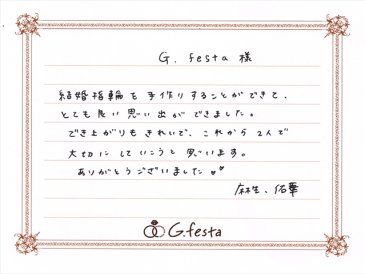 G. festa 様
結婚指輪を手作りすることができて、
とても良い思い出ができました。
でき上がりもきれいで、これから2人で
大切にしていこうと思います。
ありがとうございました♡♡
麻生、佑華
G.festa